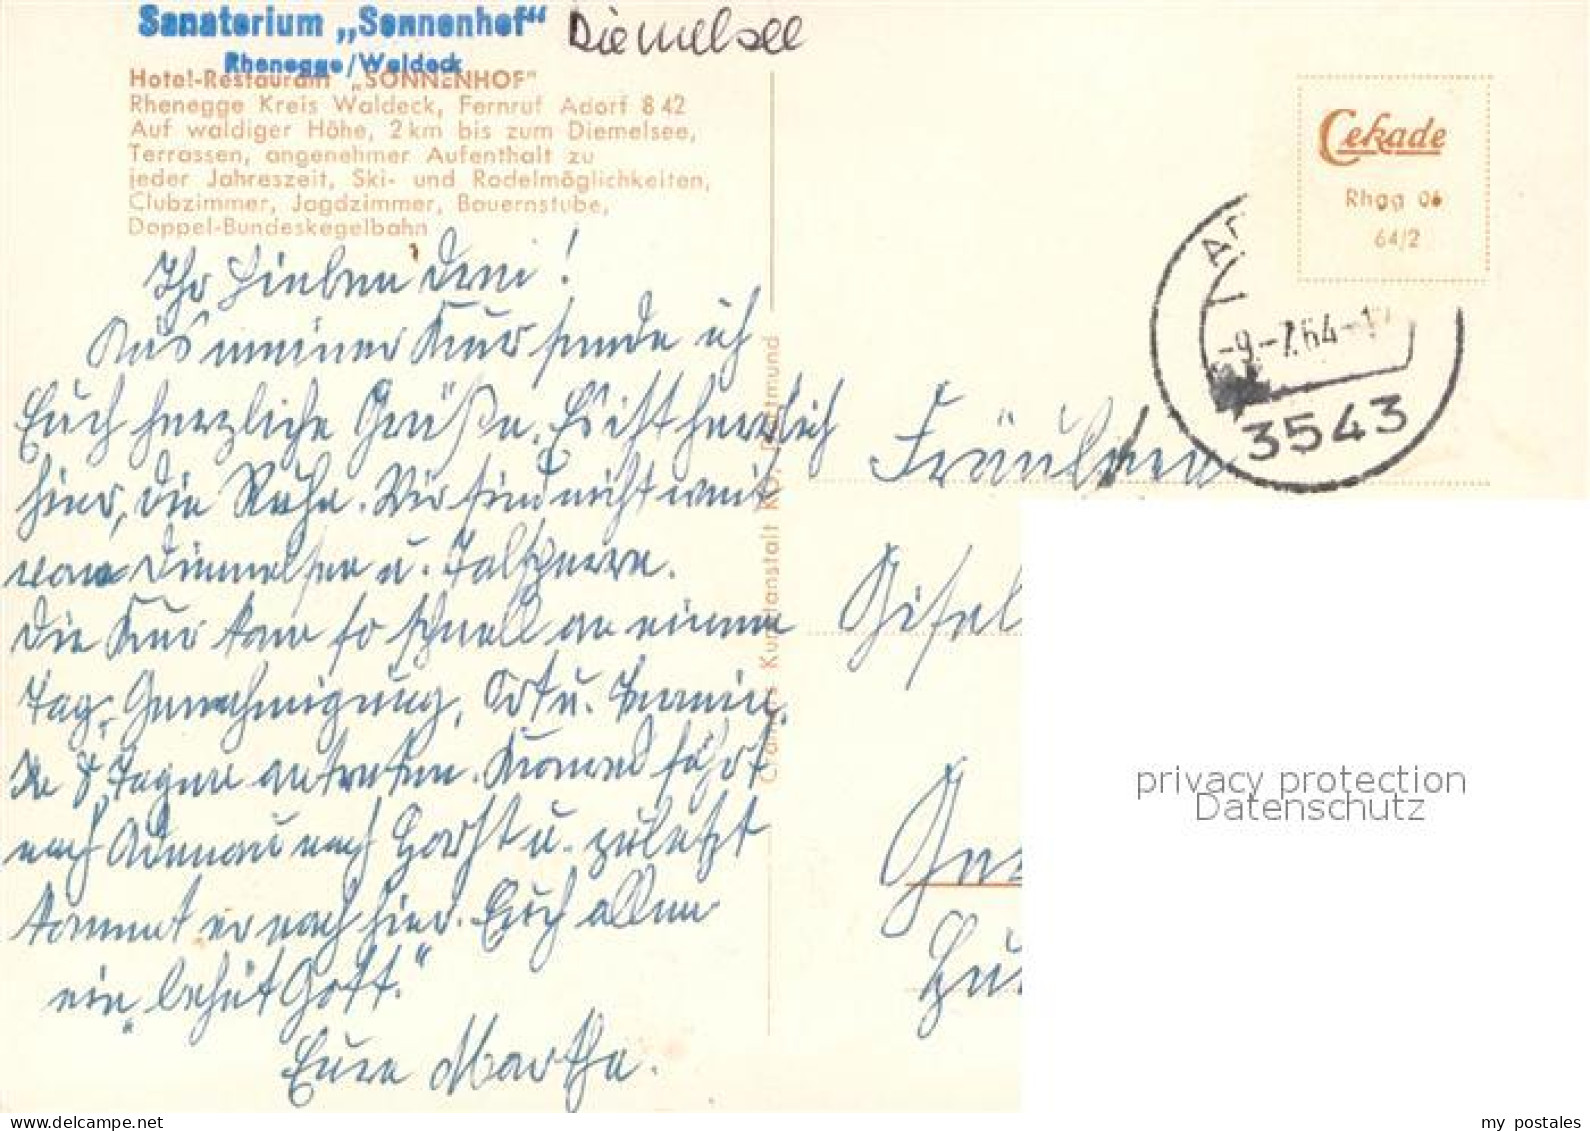 Sanatorium „Sonnenhof“
Rhenegge/Waldeck
Diemelsee
Hotel-Restaurant „SONNENHOF“
Rhenegge Kreis Waldeck, Fernruf Adorf 8 42
Auf waldiger Höhe, 2 km bis zum Diemelsee,
Terrassen, angenehmer Aufenthalt zu
jeder Jahreszeit, Ski- und Rodelmöglichkeiten,
Clubzimmer, Jagdzimmer, Bauernstube,
Doppel-Bundeskegelbahn
Ihr Lieben Drei!
Aus meiner Kur sende ich
Euch herzliche Grüße. Es ist herrlich
hier, die Ruhe. Wir sind nicht weit
vom Diemelsee u. Talsperre.
Die Kur kam so schnell an einem
Tag, Genehmigung, Ort u. Termin.
In 8 Tagen antreten. Konrad fährt
nach Adenau nach Horst u. zuletzt
kommt er noch hier. Euch allen
ein „behüt Gott.“
Eure Martha.
Cramers Kunstanstalt KG, Dortmund
Cekade
Rhgg 06
64/2
-9.-7.64-1
3543
Fräulein
Gisel
privacy protection
Datenschutz
my postales